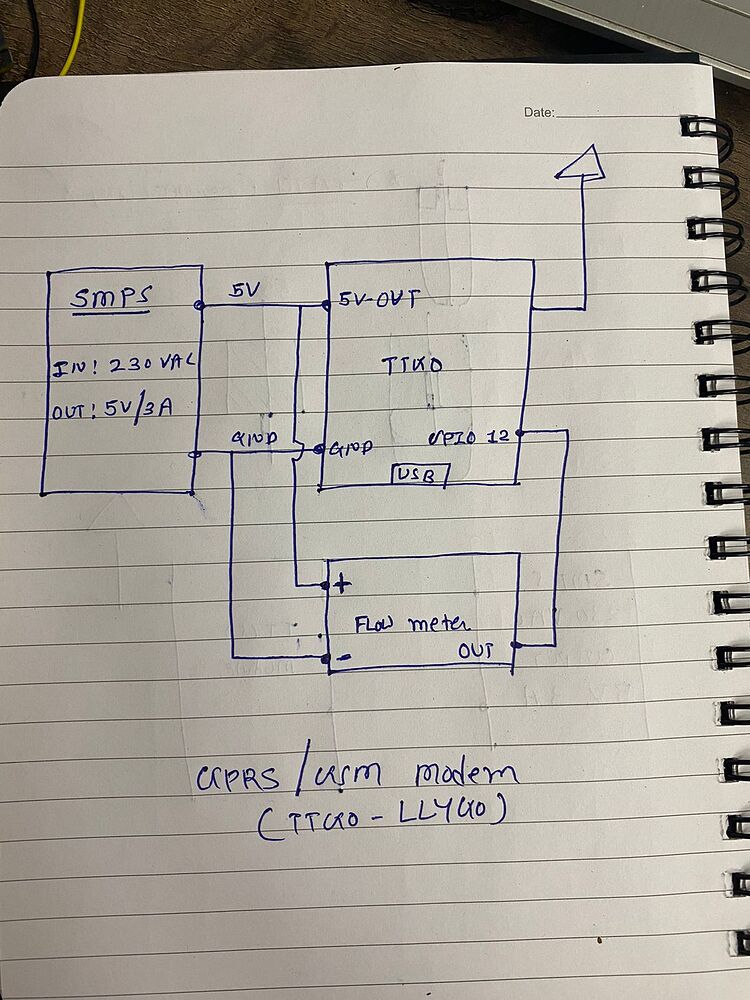 Date:
SMPS
IN: 230 VAC
OUT: 5V/3A
5V
GND
5V-OUT
TTGO
GND
GPIO 12
USB
+
FLOW meter
OUT
-
GPRS/GSM modem
(TTGO - LLYGO)